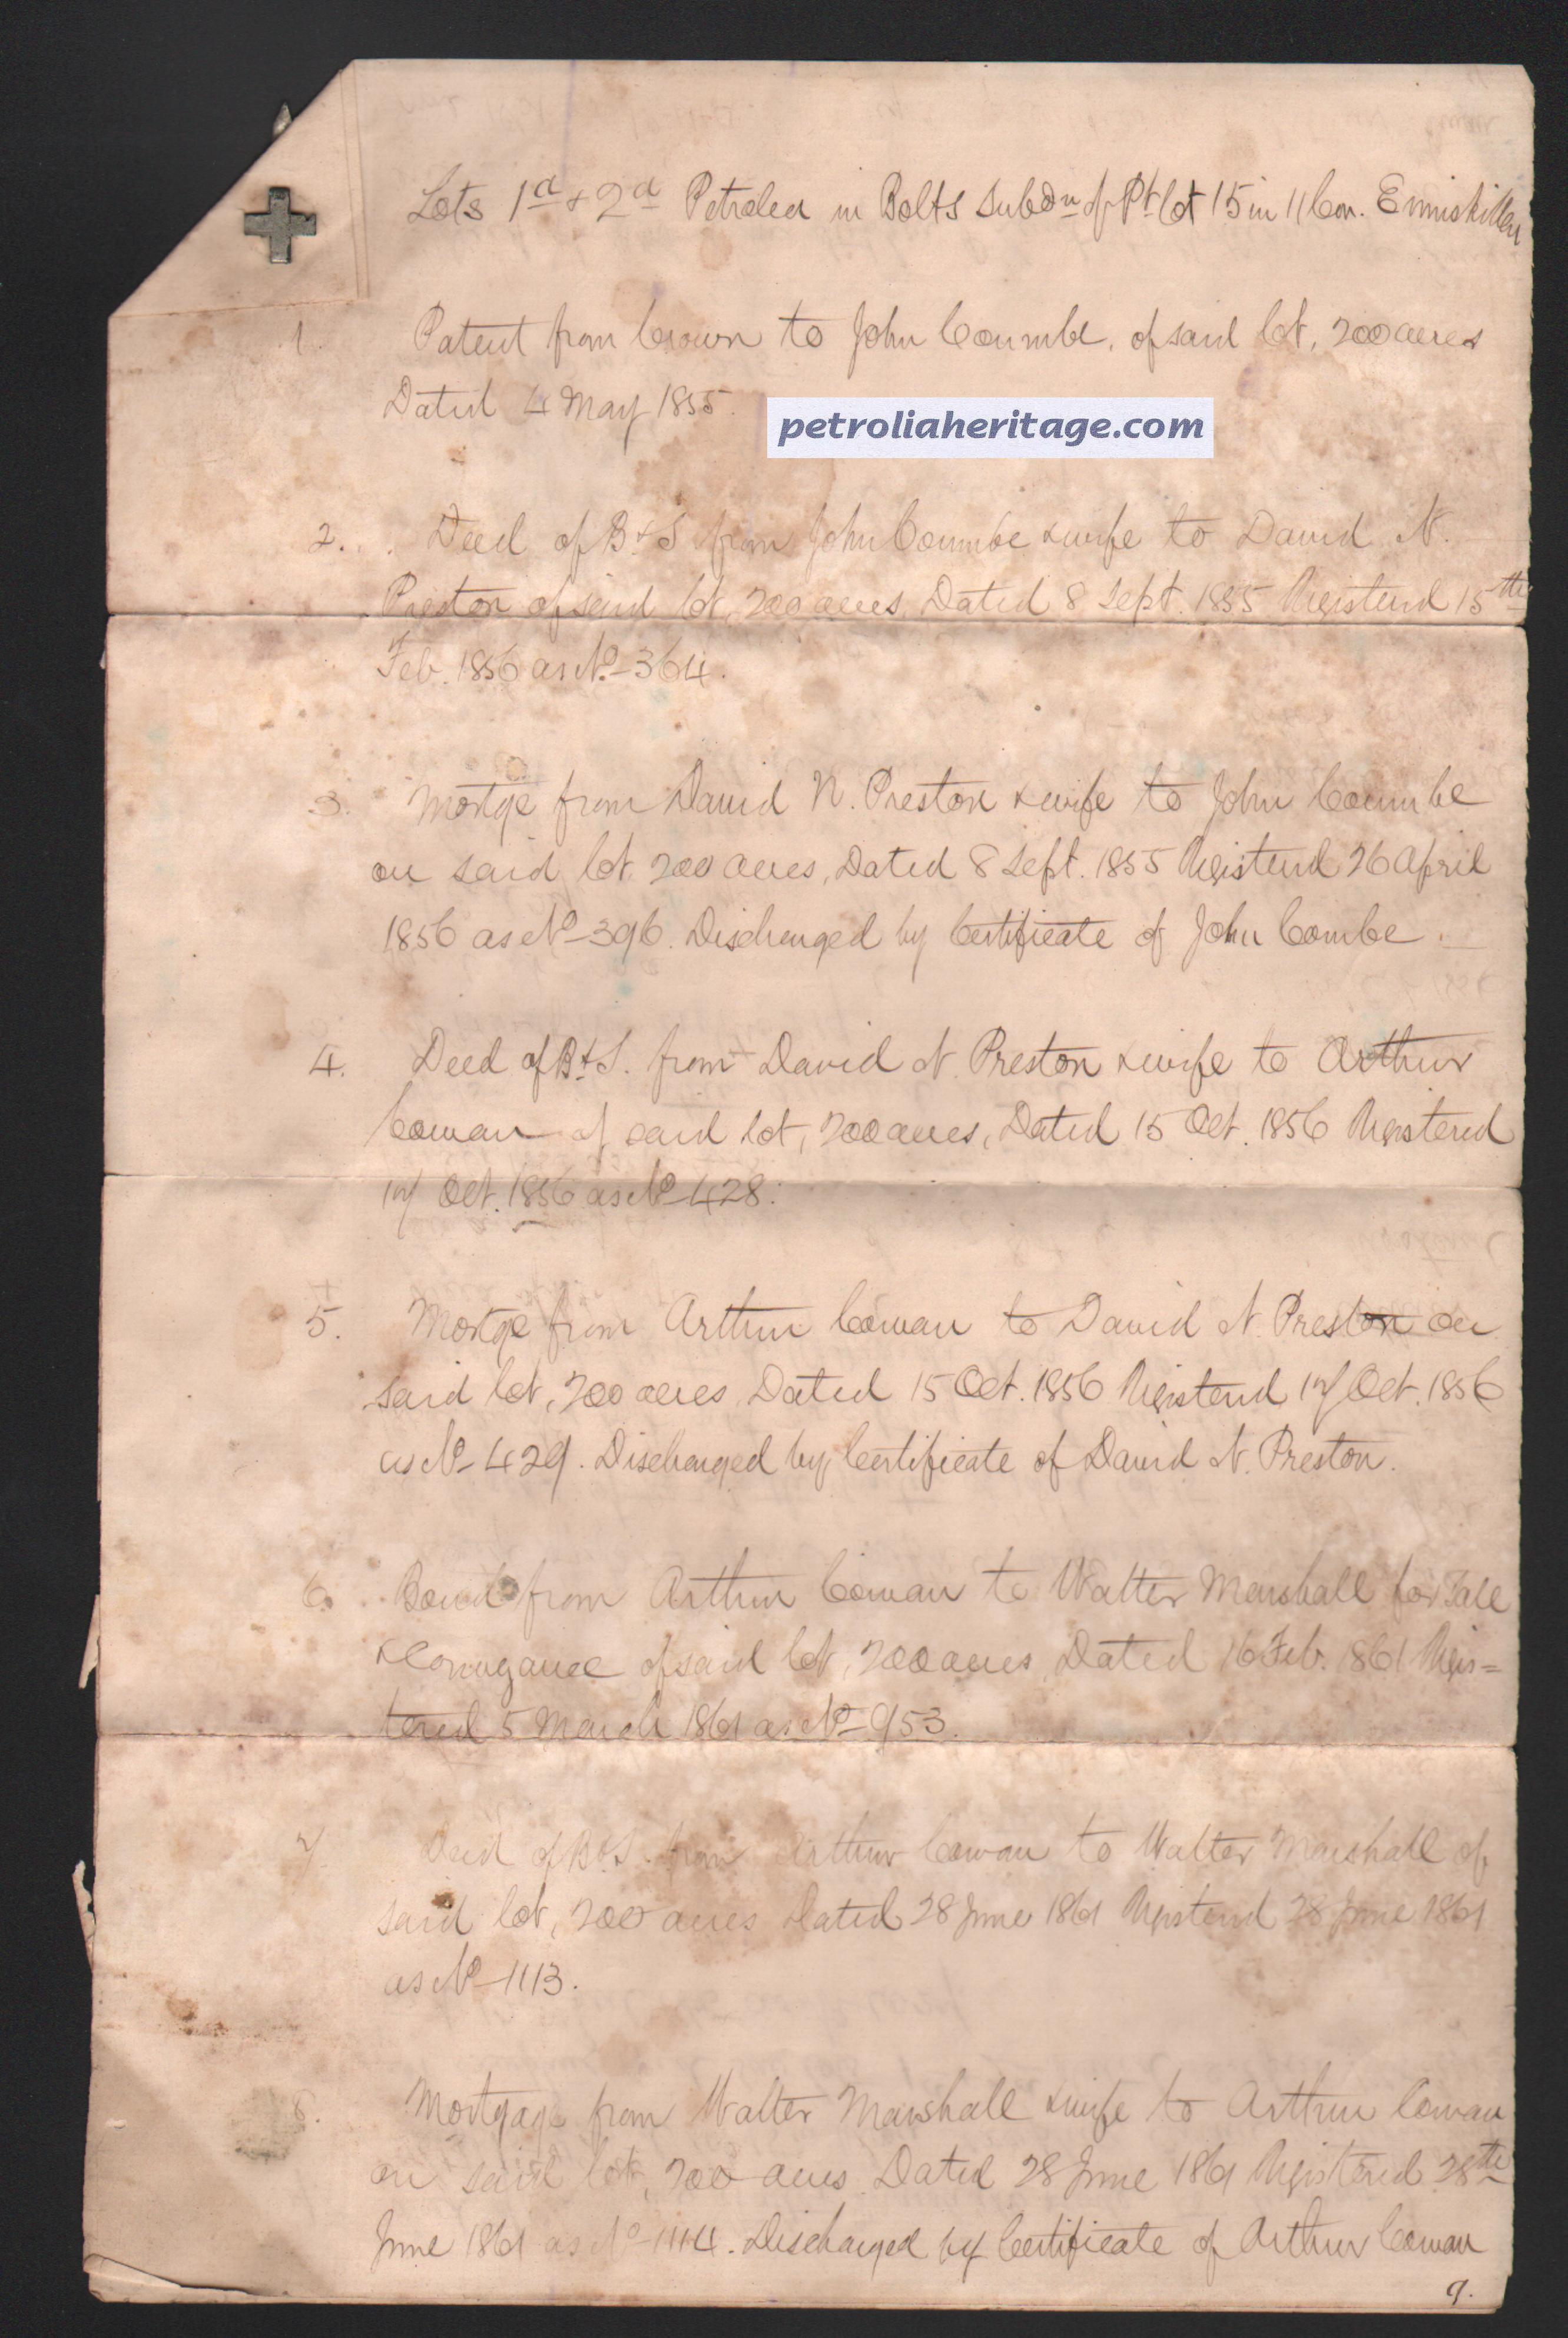 Lots 1a & 2a Petrolea in Bolts Subdn of Pt lot 15 in 11 Con. Enniskillen
1. Patent from Crown to John Coumbe, of said lot, 200 acres
Dated 4 May 1855.
petroliaheritage.com
2. Deed of B & S from John Coumbe & wife to David N.
Preston of said lot, 200 acres, Dated 8 Sept. 1855 Registered 15th
Feb. 1856 as No 364.
3. Mortge from David N. Preston & wife to John Coumbe
on said lot 200 acres, Dated 8 Sept. 1855 Registered 26 April
1856 as No 396. Discharged by Certificate of John Combe.
4. Deed of B & S. from David N. Preston & wife to Arthur
Cowan of said lot, 200 acres, Dated 15 Oct. 1856 Registered
17 Oct. 1856 as No 428.
5. Mortge from Arthur Cowan to David N. Preston on
said lot, 200 acres Dated 15 Oct. 1856 Registered 17 Oct. 1856
as No 429. Discharged by Certificate of David N. Preston.
6. Bond from Arthur Cowan to Walter Marshall for Sale
& Conveyance of said lot, 200 acres, Dated 16 Feb. 1861 Regis=
tered 5 March 1861 as No 953.
7 Deed of B & S. from Arthur Cowan to Walter Marshall of
said lot, 200 acres Dated 28 June 1861 Registered 28 June 1861
as No 1113.
8. Mortgage from Walter Marshall & wife to Arthur Cowan
on said lot, 200 acres. Dated 28 June 1861 Registered 28th
June 1861 as No 1114. Discharged by Certificate of Arthur Cowan
9.